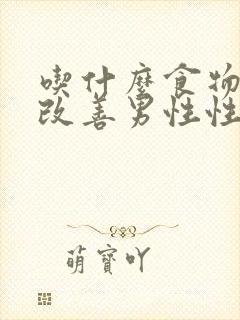 喫什麼食物
改善男性性
萌寶吖